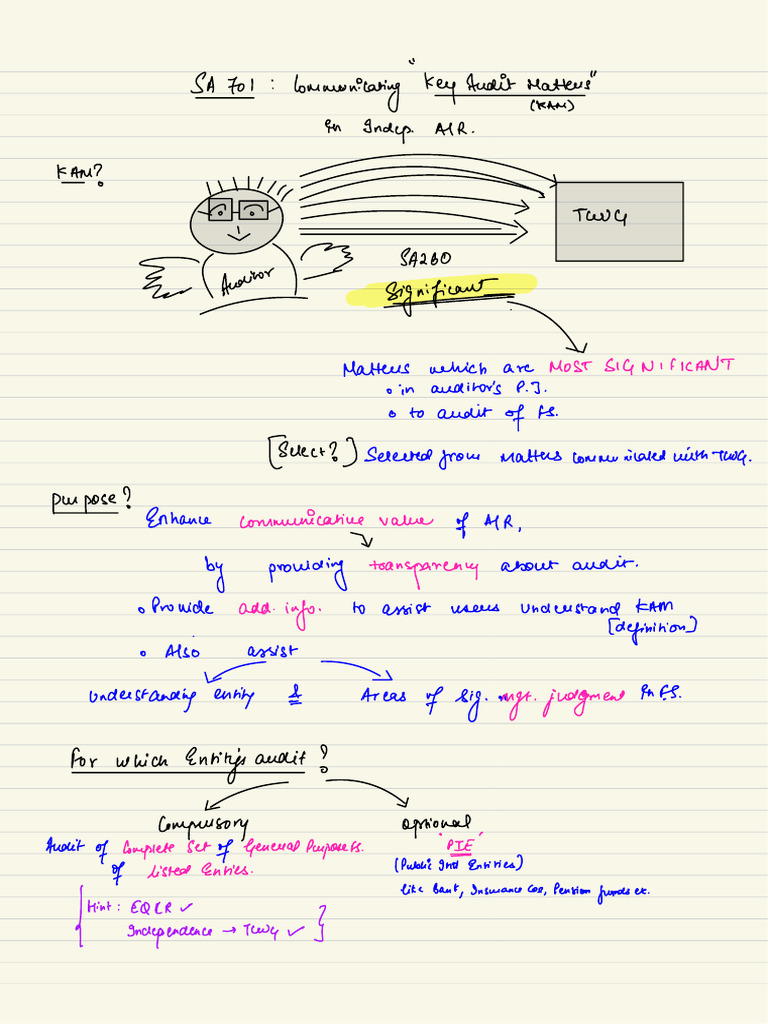 SA 701 : Communicating "Key Audit Matters"
(KAM)
in Indep. A/R.
KAM?
TCWG
Auditor
SA260
Significant
Matters which are MOST SIGNIFICANT
in auditor's P.J.
to audit of FS.
[Select?] Selected from Matters communicated with TCWG.
Purpose?
Enhance communicative value of A/R,
by providing transparency about audit.
Provide add. info. to assist users understand KAM
[definition]
Also assist
Understanding entity & Areas of Sig. mgt. judgment in FS.
For which Entity's audit?
Compulsory Optional
Audit of Complete Set of General Purpose FS. "PIE"
of Listed Entities. (Public Int Entities)
like Bank, Insurance Cos, Pension funds etc.
Hint : EQCR ✓
Independence → TCWG ✓